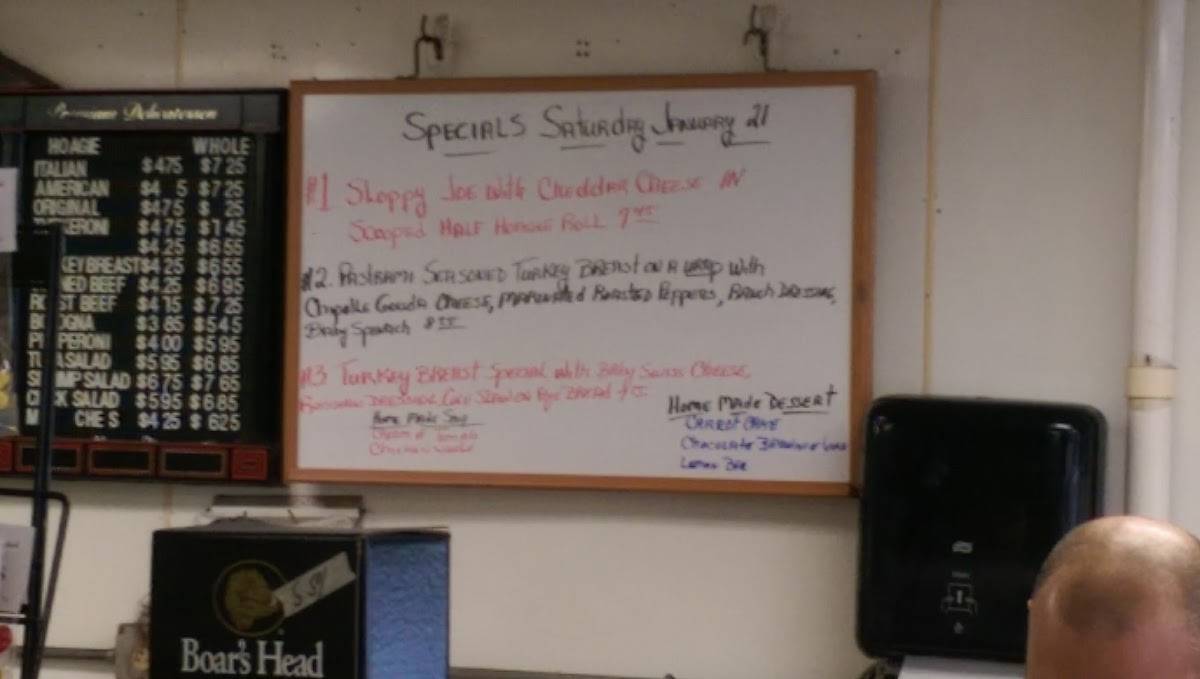 Premium Delicatessen
HOAGIE WHOLE
ITALIAN $475 $7 25
AMERICAN $4 5 $7 25
ORIGINAL $475 $ 25
ERONI $475 $1 45
$4.25 $6.55
KEY BREAST $4 25 $6.55
NED BEEF $4.25 $6 95
RO ST BEEF $4 15 $7 25
BO OGNA $3 85 $5 45
P PERONI $4 00 $5 95
TU A SALAD $5 95 $6 85
S IMP SALAD $6 75 $7 65
C K SALAD $5 95 $6 85
M CHE S $4 25 $6 25
SPECIALS SATURDAY JANUARY 21
#1 SLOPPY JOE WITH CHEDDAR CHEESE IN
SCOOPED HALF HOAGIE ROLL
#2. PASTRAMI SEASONED TURKEY BREAST ON A WRAP WITH
CHIPOTLE GOUDA CHEESE, MARINATED ROASTED PEPPERS, RANCH DRESSING,
BABY SPINACH
#3 TURKEY BREAST SPECIAL WITH BABY SWISS CHEESE,
RUSSIAN DRESSING, COLE SLAW ON RYE BREAD
HOME MADE SOUP
CREAM OF TOMATO
CHICKEN NOODLE
HOME MADE DESSERT
CARROT CAKE
CHOCOLATE BROWNIE
LEMON BAR
Boar's Head